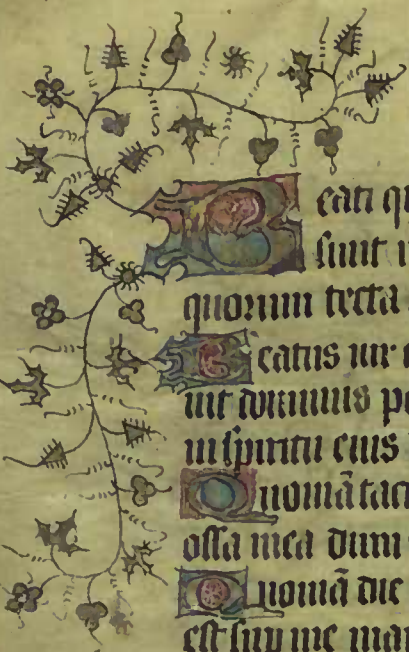 Beati qu
sunt
quorum tecta
Beatus uir
uit dominus
in spiritu eius
Quoniā tacu
ossa mea dum
Quoniā die
est sup me man